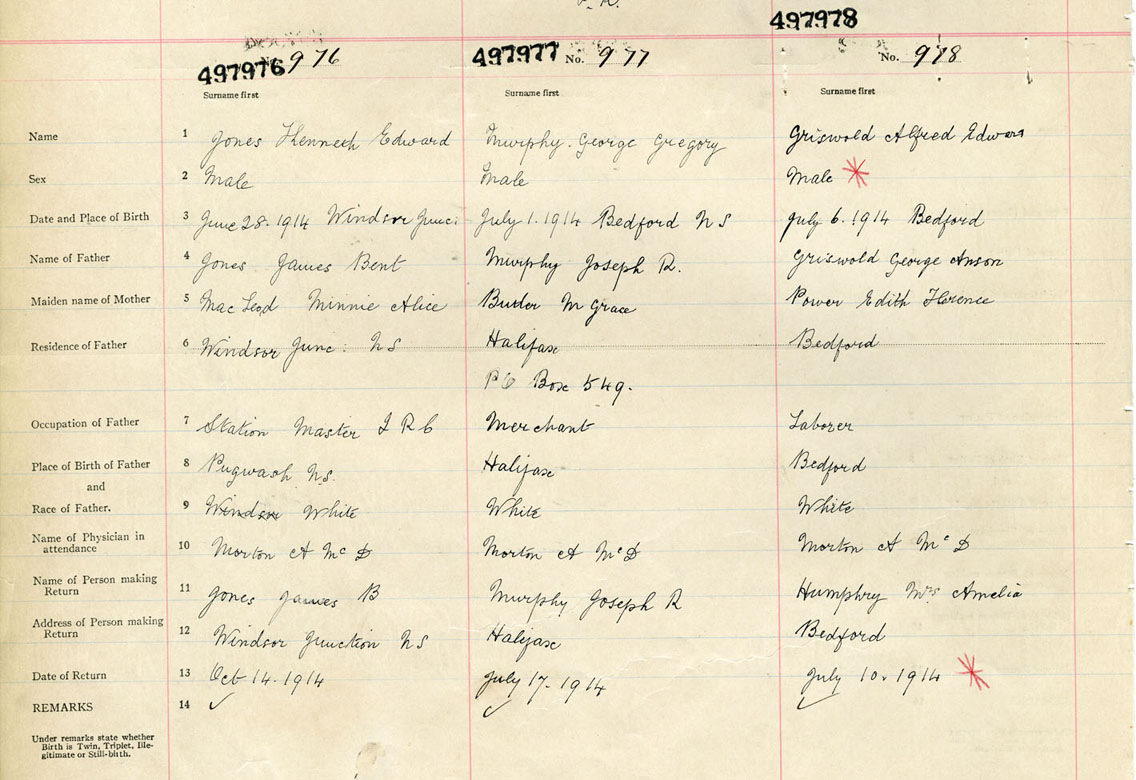 497978
497976 976
497977 No. 977
No. 978
Surname first Surname first Surname first
Name 1 Jones Kenneth Edward Murphy. George Gregory Griswold Alfred Edward
Sex 2 Male Male Male
Date and Place of Birth 3 June 28. 1914 Windsor Junc: July 1. 1914 Bedford NS July 6. 1914 Bedford
Name of Father 4 Jones James Bent Murphy Joseph R. Griswold George Anson
Maiden name of Mother 5 MacLeod Minnie Alice M Grace Power Edith Florence
Residence of Father 6 Windsor Junc: NS Halifax Bedford
PO Box 549.
Occupation of Father 7 Station Master I R C Merchant Laborer
Place of Birth of Father 8 Pugwash N.S. Halifax Bedford
and
Race of Father. 9 Windsor White White White
Name of Physician in
attendance 10 Morton A McD Morton A McD Morton A McD
Name of Person making
Return 11 Jones James B Murphy Joseph R Humphry Mrs Amelia
Address of Person making
Return 12 Windsor Junction NS Halifax Bedford
Date of Return 13 Oct 14. 1914 July 17. 1914 July 10. 1914
REMARKS 14 ✓ ✓ ✓
Under remarks state whether
Birth is Twin, Triplet, Ille-
gitimate or Still-birth.